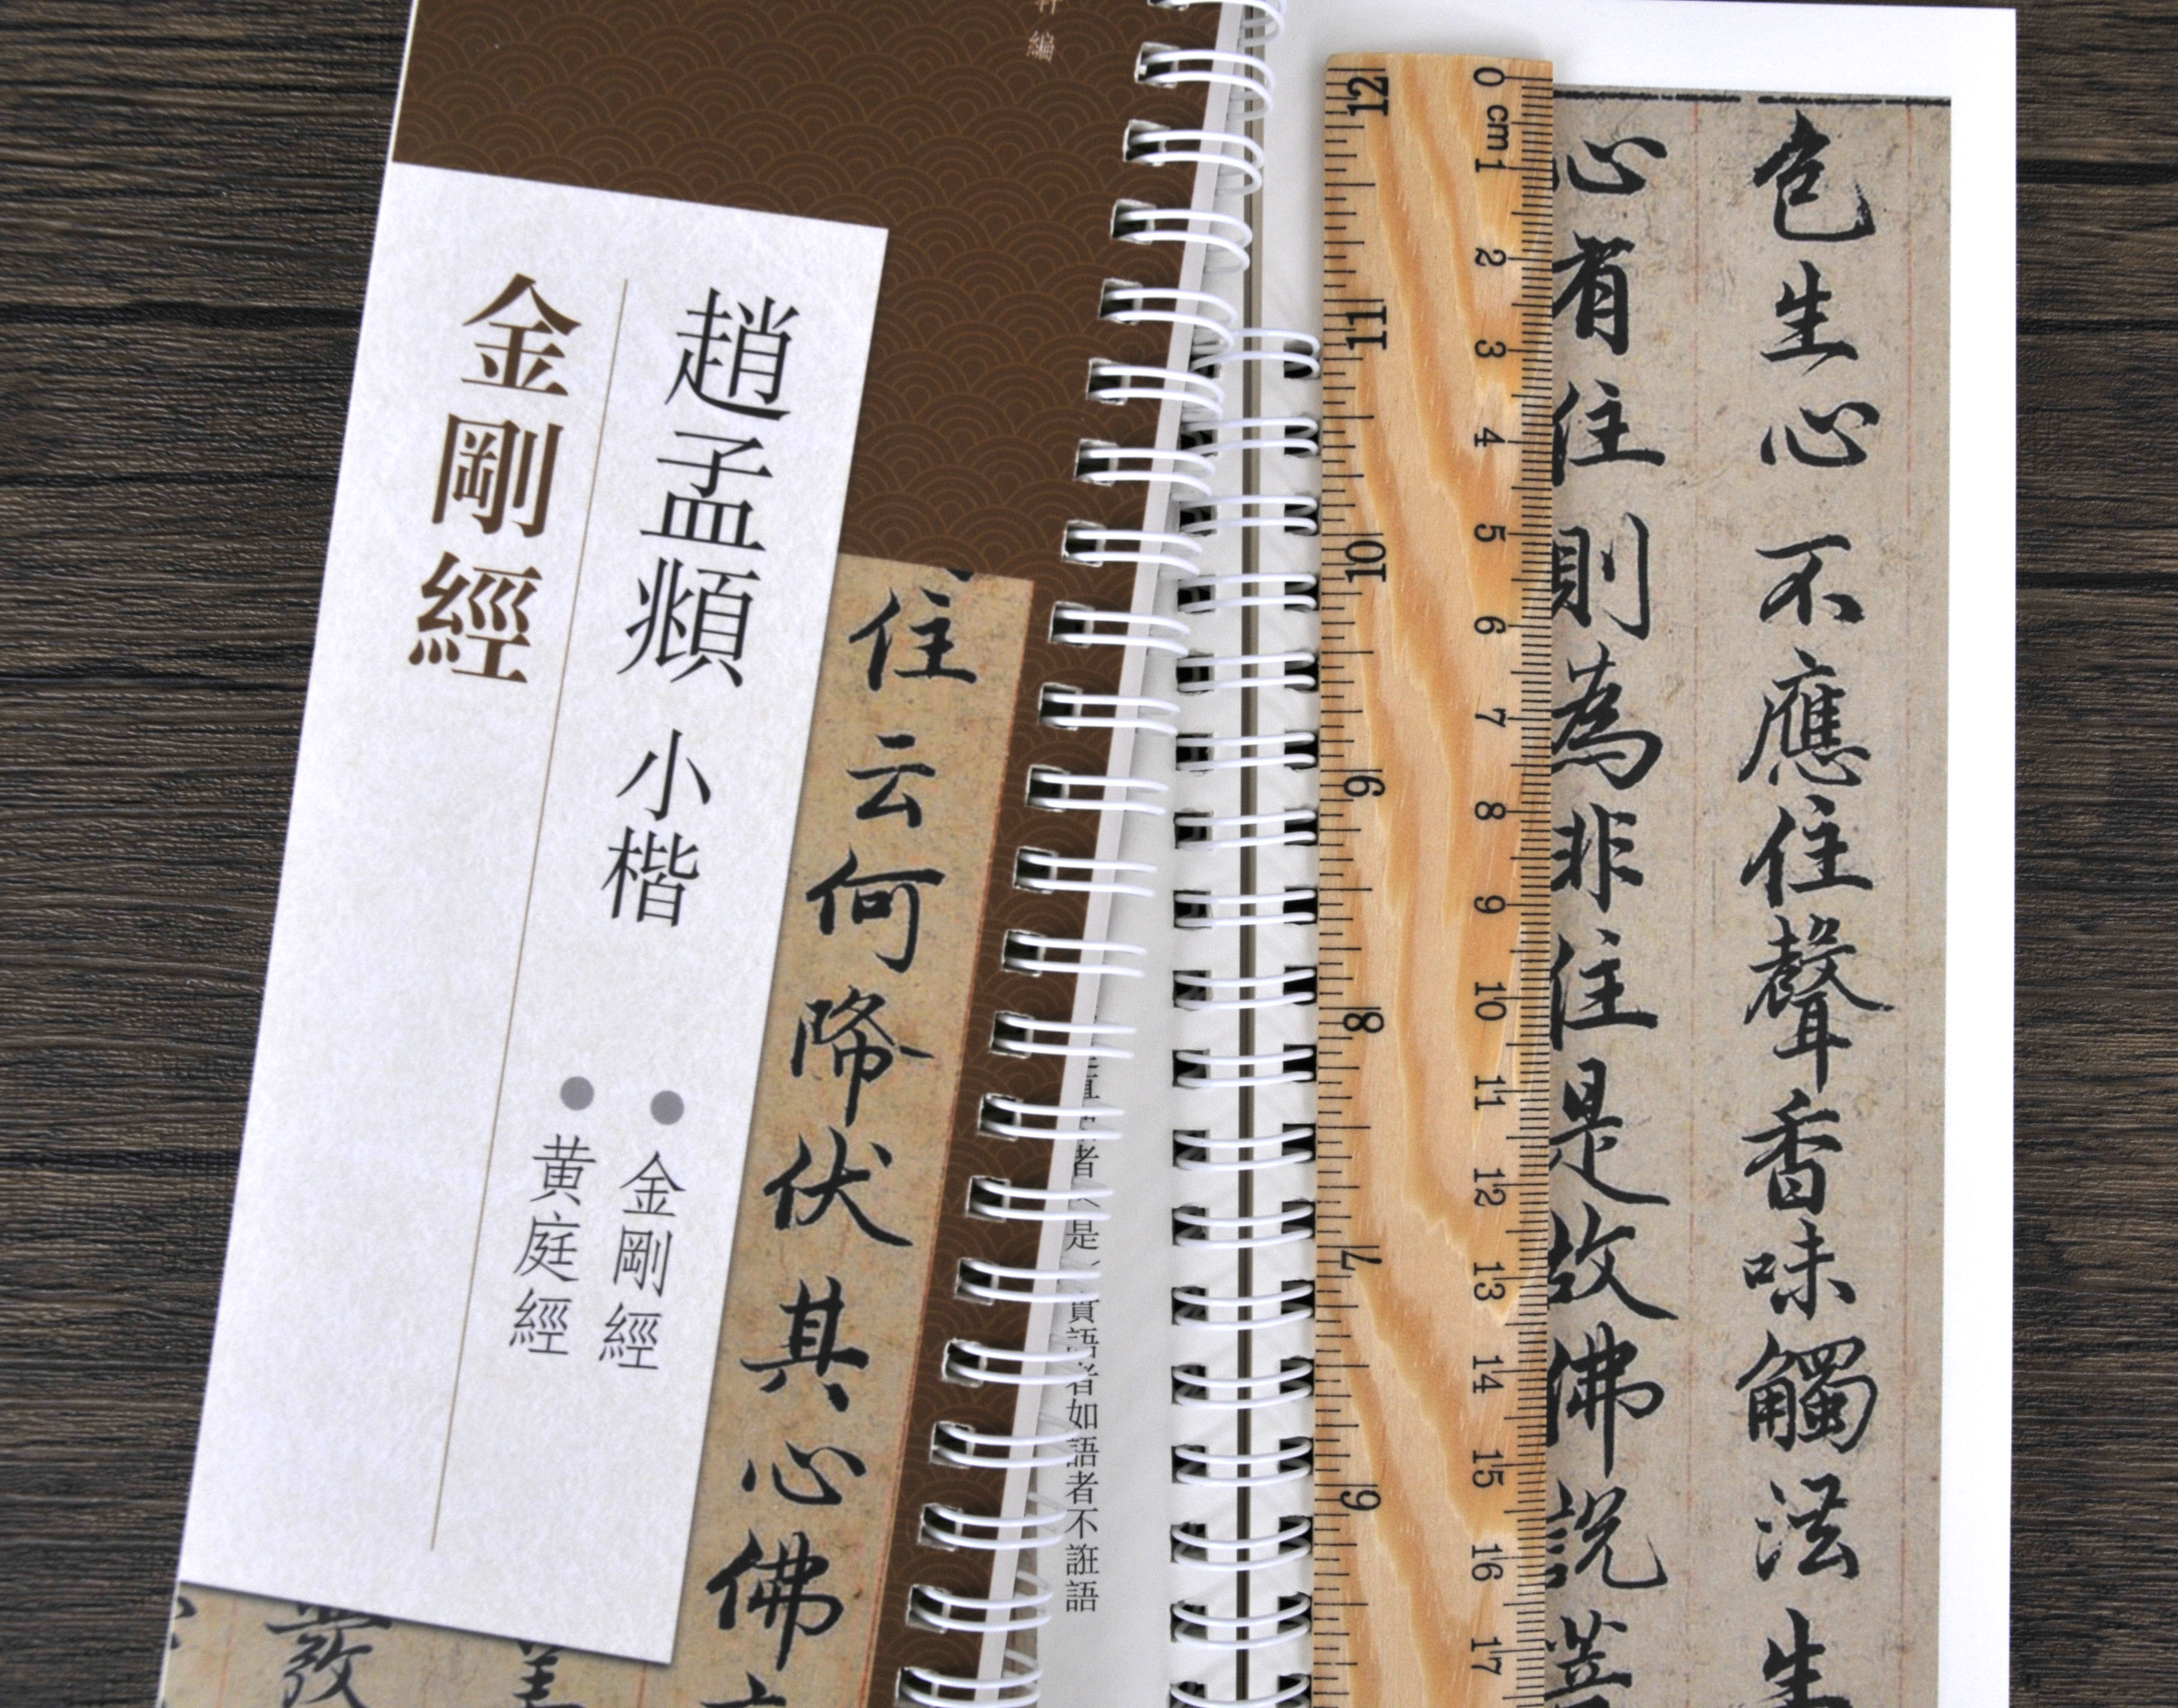 編
趙孟頫 小楷
金剛經
●金剛經
●黄庭經
住云何降伏其心佛
色生心不應住聲香味觸法生
心有住則為非住是故佛說菩
語者如語者不誑語
0 cm 1 2 3 4 5 6 7 8 9 10 11 12 13 14 15 16 17
12 11 10 9 8 7 6